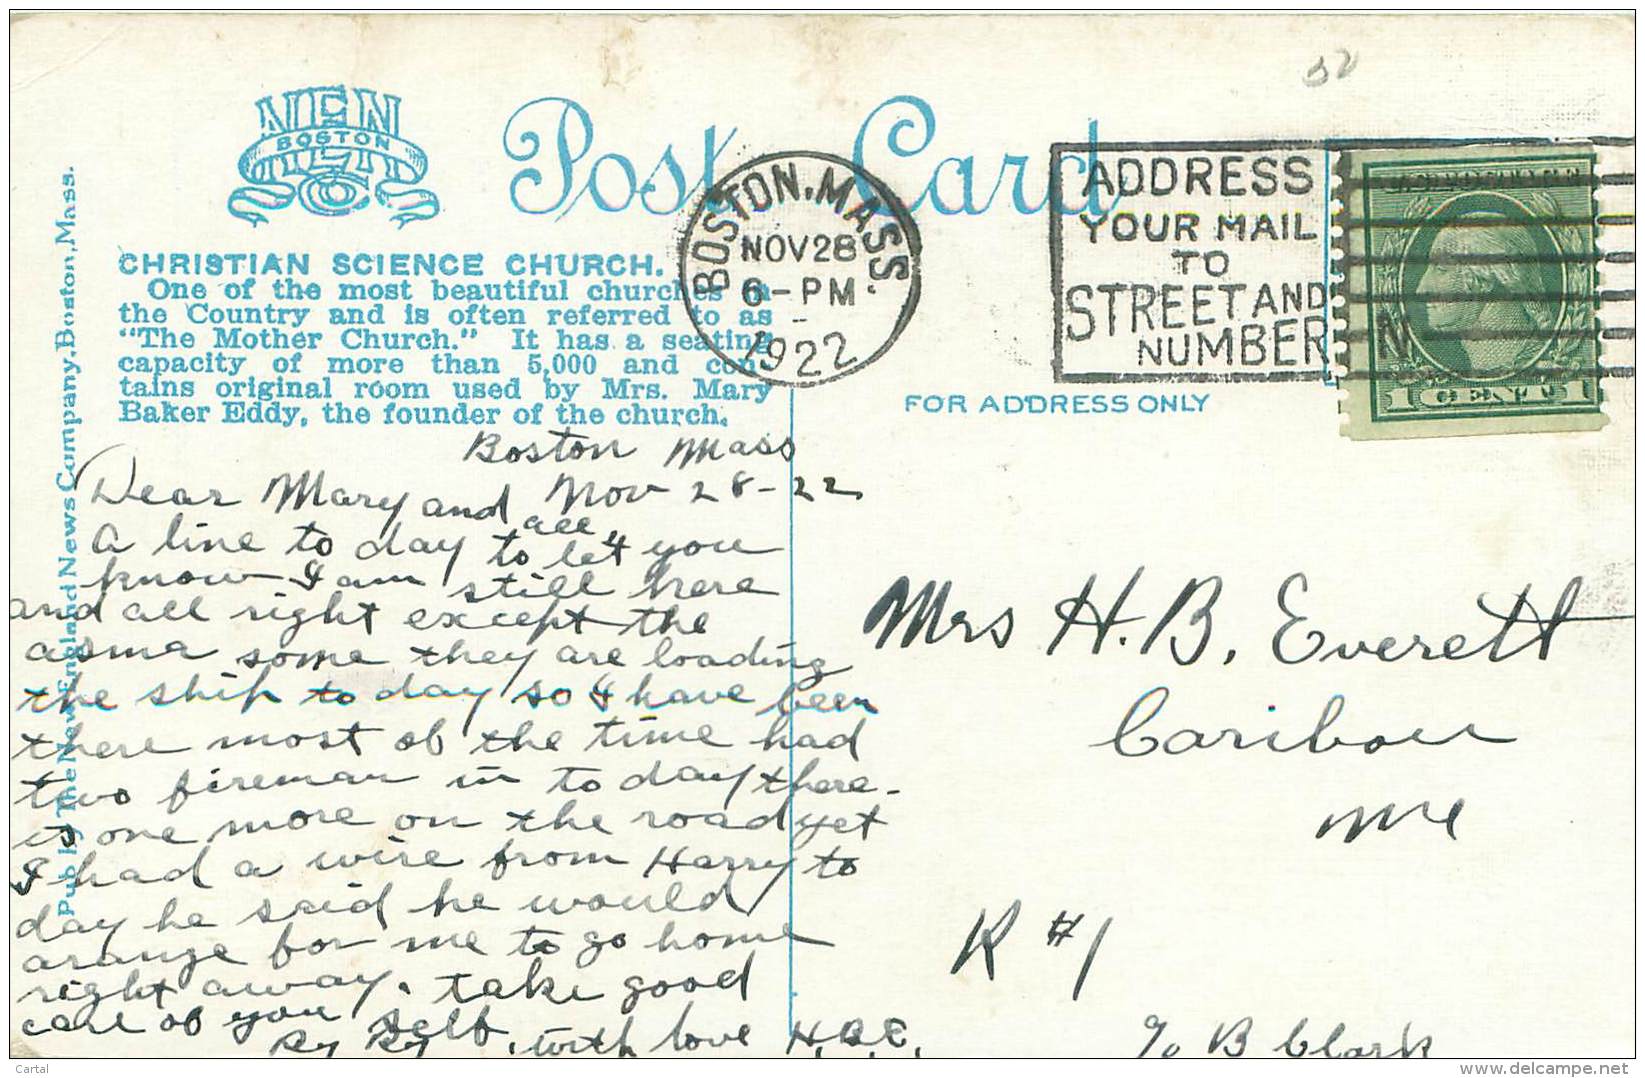 NEN
BOSTON
Post Card
BOSTON, MASS.
NOV 28
6 - PM
1922
ADDRESS
YOUR MAIL
TO
STREET AND
NUMBER
1 CENT 1
FOR ADDRESS ONLY
CHRISTIAN SCIENCE CHURCH.
One of the most beautiful churches in
the Country and is often referred to as
"The Mother Church." It has a seating
capacity of more than 5,000 and con-
tains original room used by Mrs. Mary
Baker Eddy, the founder of the church.
Pub. by The New England News Company, Boston, Mass.
Boston Mass
Nov 28-22
Dear Mary and all,
A line to day to let you
know I am still here
and all right except the
asma some they are loading
the ship to day so I have been
there most of the time had
two fireman in to day there-
is one more on the road yet
I had a wire from Harry to
day he said he would
arange for me to go home
right away. take good
care of you self
By By, with love H.B.E.
Mrs H. B. Everett
Caribou
Me
R #1
c/o B Clark
52
Cartal
www.delcampe.net